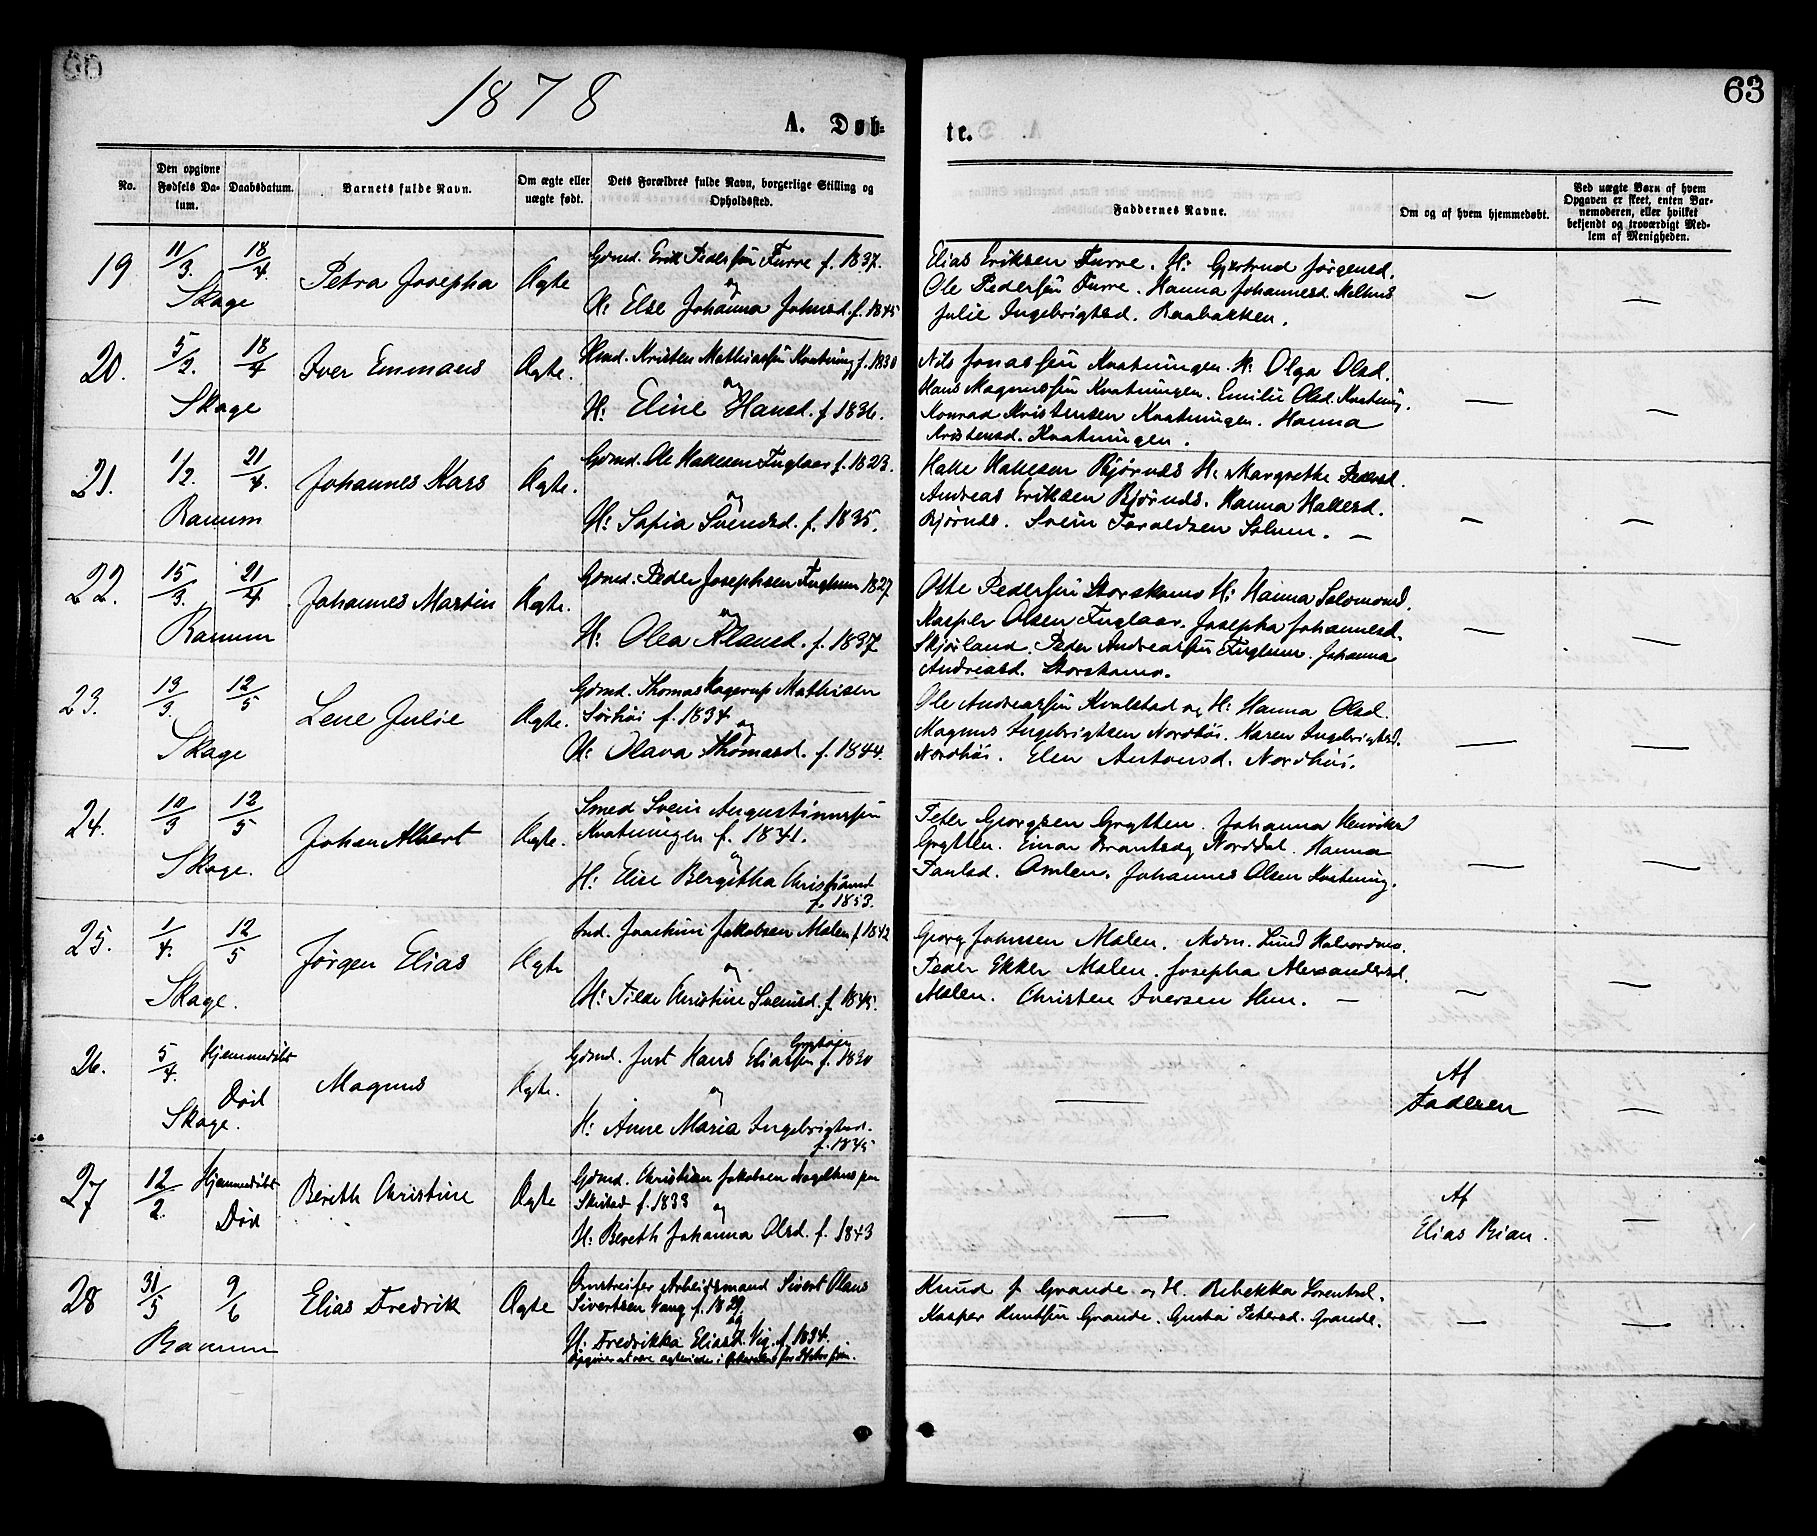 1878
A. Døb-
te.
63
No.
Den opgivne Fødsels Da-tum.
Daabsdatum.
Barnets fulde Navn.
Om ægte eller uægte født.
Dets Forældres fulde Navn, borgerlige Stilling og Opholdssted.
Faddernes Navne.
Om og af hvem hjemmedøbt.
Ved uægte Børn af hvem Opgaven er skeet, enten Bar-nemoderen, eller hvilket bekjendt og troværdigt Med-lem af Menigheden.
19 11/3. 18/4. Petra Josepha Ægte
Skage
Gdmd. Erik Pedersen Furre f. 1837.
og
H: Else Johanna Johnsd. f. 1845
Elias Eriksen Furre. H: Gjertrud Jørgensd.
Ole Pedersen Furre. Hanna Johannesd. Melhus
Julie Ingebrigtsd. Raabakken. — —
20. 5/2. 18/4 Iver Emmaus Ægte.
Skage
Hmd. Kristen Mathiassen Kvatning f. 1830
og
H: Eline Hansd. f. 1836.
Nils Jonassen Kvatningen. H: Olga Olsd.
Hans Magnussen Kvatningen. Emilie Olsd. Kvatning.
Konrad Kristensen Kvatningen. Hanna
Kristensd. Kvatningen. — —
21. 1/2. 21/4. Johannes Ægte.
Ranum
Gdmd. Ole Hallesen Fuglaar f. 1823.
og
H: Sofia Svendsd. f. 1835.
Halle Hallesen Bjørnes H: Margrethe Pedersd.
Andreas Eriksen Bjørnes. Hanna Hallesd.
Bjørnes. Svein Taraldsen Solum. — — —
22. 15/3. 21/4 Johannes Martin Ægte.
Ranum
Gdmd. Peder Josephsen Fuglum 1827
og
H: Olea Klausd. f. 1837
Otte Pedersen Storskomo H: Hanna Salomonsd.
Kasper Olsen Fuglaar. Josepha Johannesd.
Skjørland. Peder Andreassen Fuglum. Johanna
Andreasd. Storskomo. — —
23. 13/3. 12/5 Lene Julie Ægte.
Skage
Gdmd. Thomas Kagerup Mathisen
Sørhøi f. 1834 og
H: Olava Thomasd. f. 1844.
Ole Andreassen Kvalstad og H: Hanna Olsd.
Magnus Ingebrigtsen Nordhøi. Maren Ingebrigtsd.
Nordhøi. Elen Antonsd. Nordhøi. — —
24. 10/3 12/5 Johan Albert Ægte.
Skage.
Smed Svein Augustinussen
Kvatningen f. 1841.
og
H: Elise Bergitha
f. 1853.
Peter Georgsen Grytten. Johanna Henriksd
Grytten. Einar Brantsæg Norddal. Hanna
Paulsd. Amlen. Johannes Olsen Kvatning. — —
25. 1/4. 12/5 Jørgen Elias Ægte
Skage.
Ind. Joachim Jakobsen Møien f 1842
og
H: Tilde Christine Svensd. f. 1845.
Georg Johnsen Møien. Mdm. Lund Halvordmo.
Peder Ekker Møien. Josepha Alexandersd.
Møien. Christen Iversen Hun. — — —
26. 5/4. Hjemmedøbt
Død Magnus Ægte.
Skage.
Gdmd. Just Hans Eliassen f. 1820
og
H: Anne Maria Ingebrigtsd.
f. 1845
—
Af
Faderen —
27 12/2. Hjemmedøbt
Død Bereth Christine Ægte
Gdmd. Christian Jakobsen
Skistad f. 1833 og
H: Bereth Johanna Olsd. f. 1843
—
Af
Elias Bian. —
28 31/5 9/6 Elias Fredrik Ægte
Ranum
Omstreifer Arbeidsmand Sivert Olaus
Sivertsen Vang f. 1829.
og
H: Fredrikka Eliasd. Vig. f. 1834.
Knud J. Grande og H. Rebekka Lorentsd.
Kasper Knudsen Grande. Gusta Petersd. Grande. — —